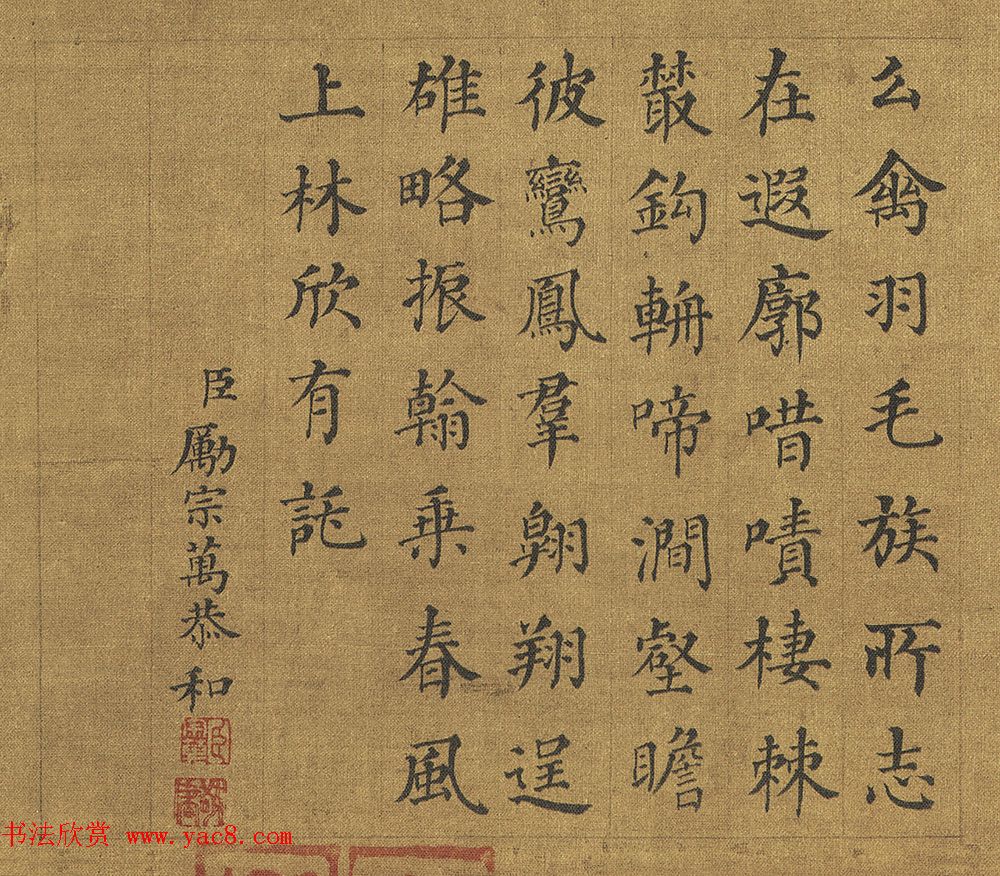 么禽羽毛族所志
在遐廓唶嘖棲棘
叢鈎輈啼澗壑瞻
彼鸞鳳羣翺翔逞
雄略振翰乗春風
上林欣有託
臣勵宗萬恭和
书法欣赏 www.yac8.com